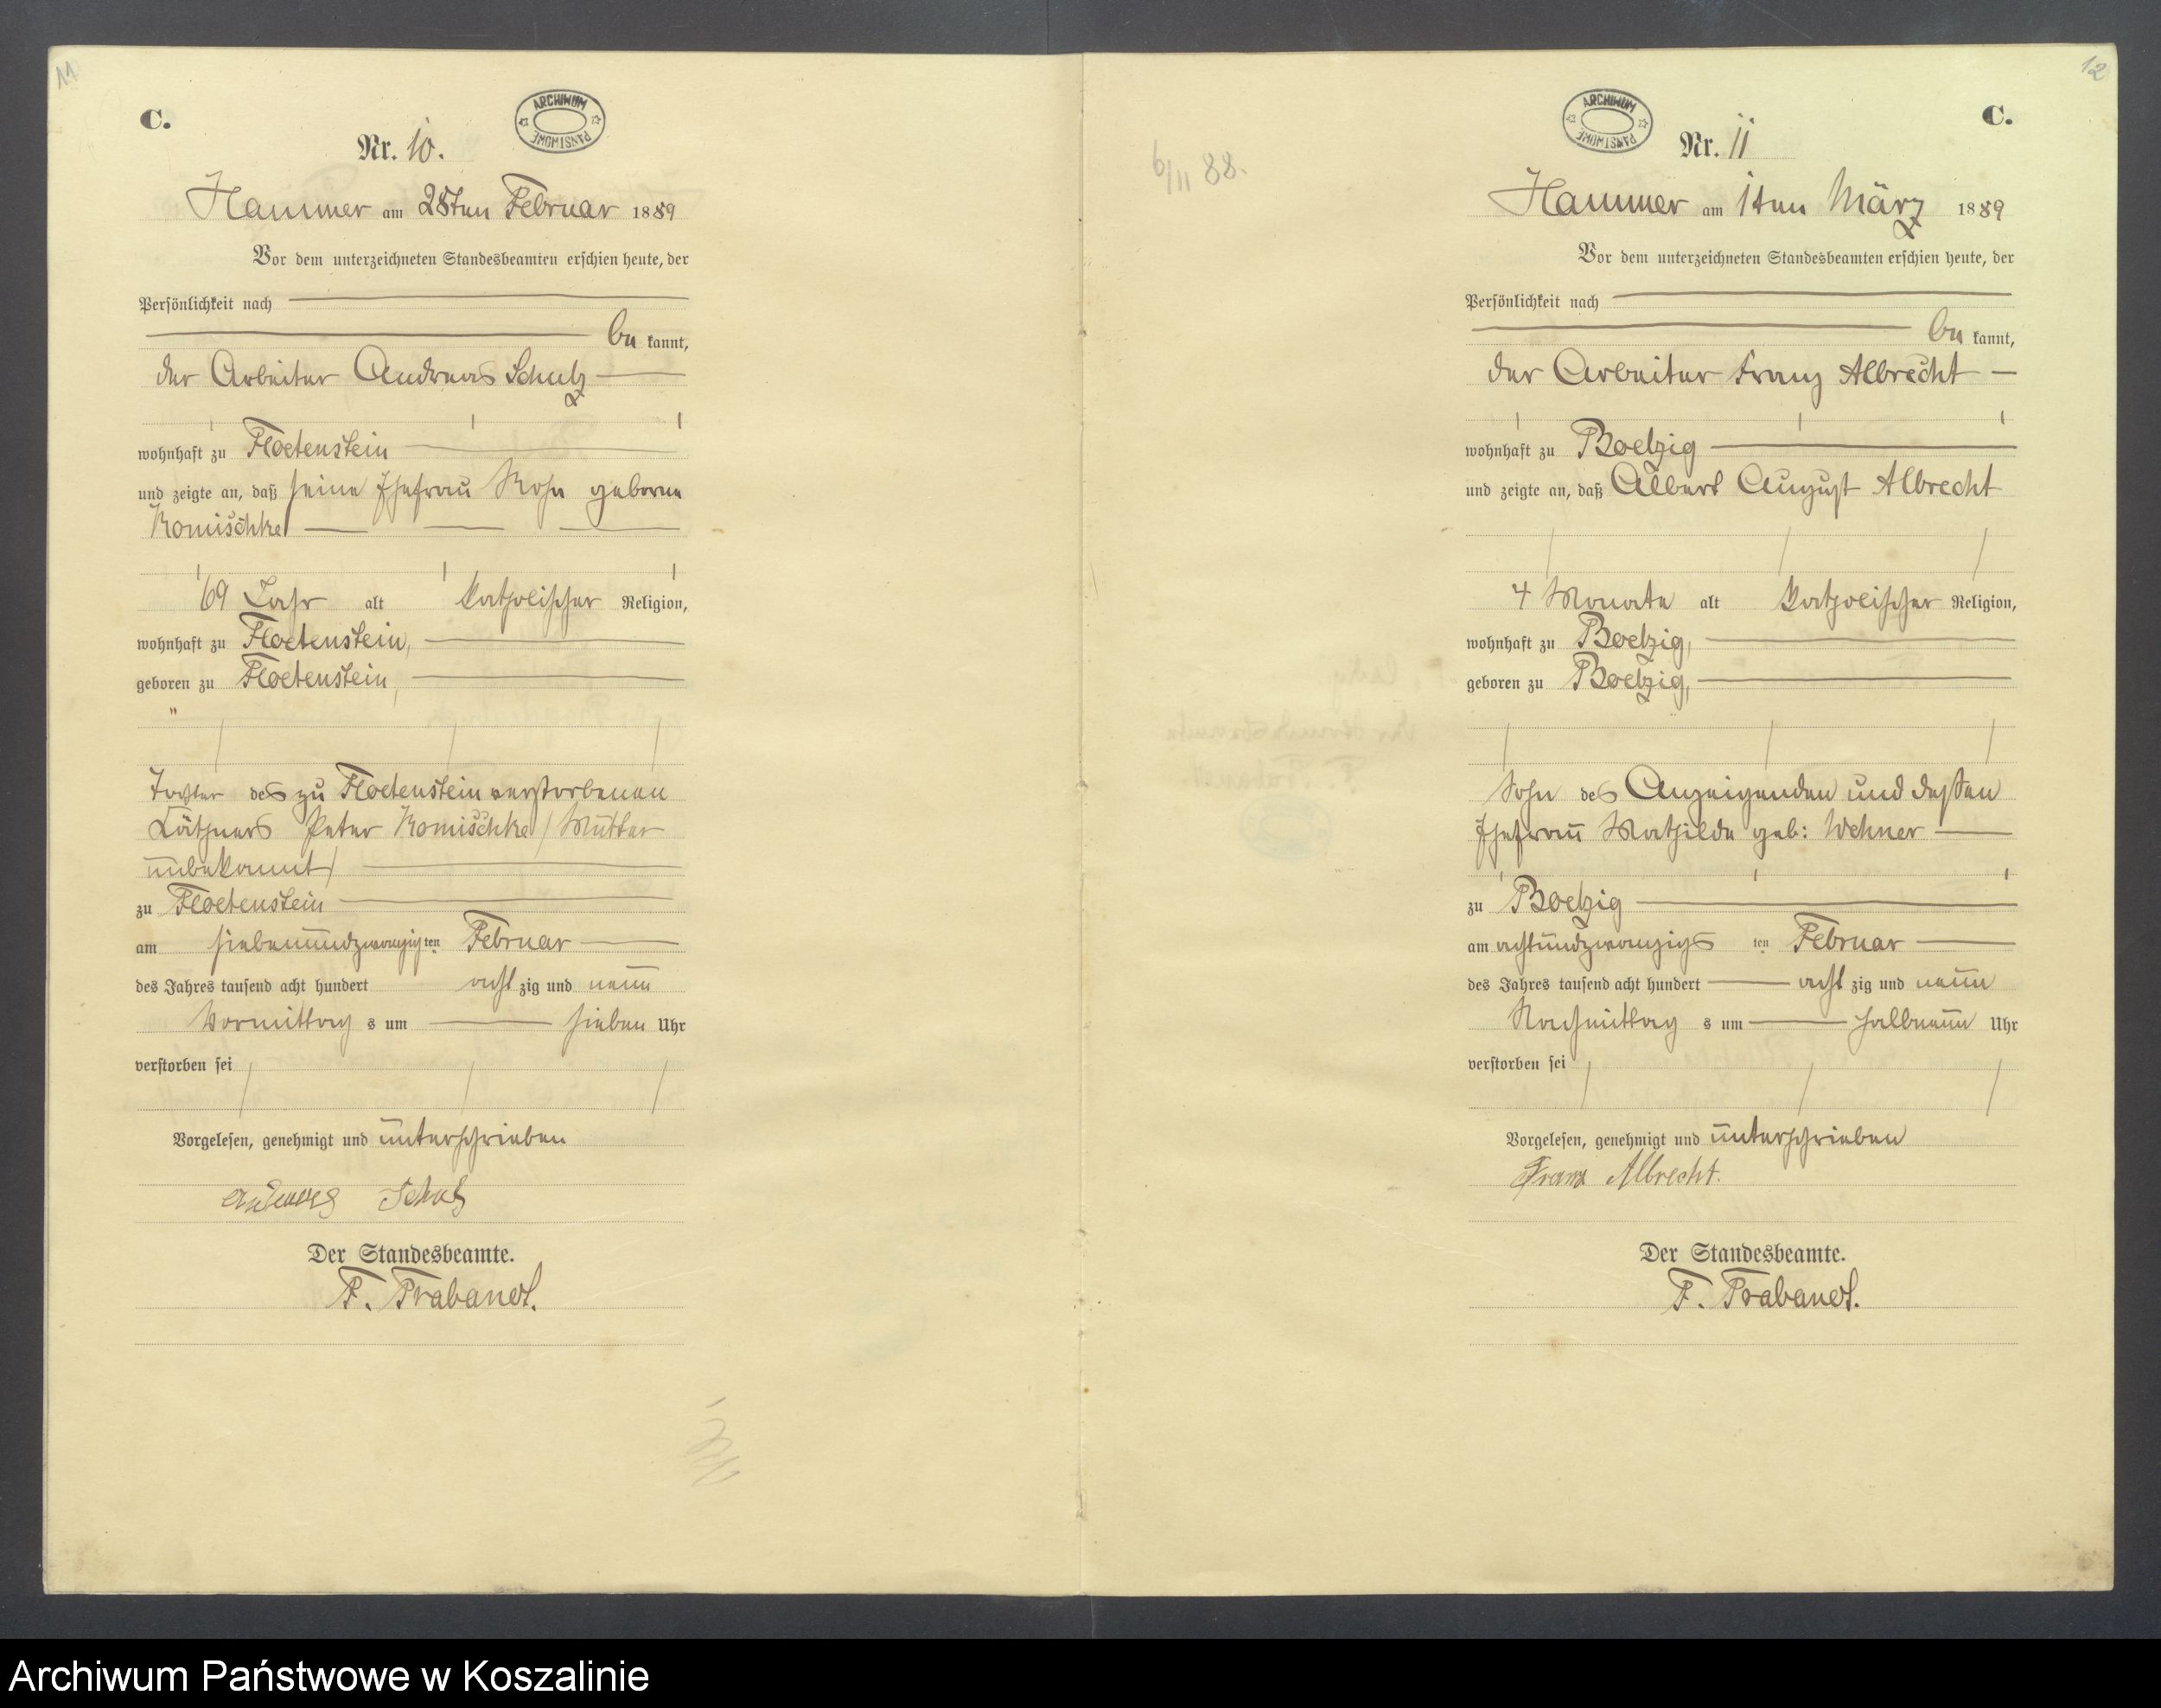 11
C.
ARCHIWUM PAŃSTWOWE
Nr. 10.
Hammer am 28ten Februar 1889
Vor dem unterzeichneten Standesbeamten erschien heute, der
Persönlichkeit nach
be kannt,
der Arbeiter Andreas Schulz
wohnhaft zu Floetenstein
und zeigte an, daß seine Ehefrau Rosa geborne
Komischke
69 Jahr alt katholischer Religion,
wohnhaft zu Floetenstein,
geboren zu Floetenstein,
"
Tochter des zu Floetenstein verstorbenen
Käthners Peter Komischke / Mutter
unbekannt /
zu Floetenstein
am siebenundzwanzigsten Februar
des Jahres tausend acht hundert acht zig und neun
Vormittag s um sieben Uhr
verstorben sei
Vorgelesen, genehmigt und unterschrieben
Andreas Schulz
Der Standesbeamte.
F. Trabandt.
6/11 88.
12
C.
ARCHIWUM PAŃSTWOWE
Nr. 11
Hammer am 1ten März 1889
Vor dem unterzeichneten Standesbeamten erschien heute, der
Persönlichkeit nach
be kannt,
der Arbeiter Franz Albrecht
wohnhaft zu Boelzig
und zeigte an, daß Albert August Albrecht
4 Monate alt katholischer Religion,
wohnhaft zu Boelzig,
geboren zu Boelzig,
Sohn des Anzeigenden und dessen
Ehefrau Mathilde geb: Wehner
zu Boelzig
am achtundzwanzigs ten Februar
des Jahres tausend acht hundert acht zig und neun
Nachmittag s um halbneun Uhr
verstorben sei
Vorgelesen, genehmigt und unterschrieben
Franz Albrecht.
Der Standesbeamte.
F. Trabandt.
Archiwum Państwowe w Koszalinie